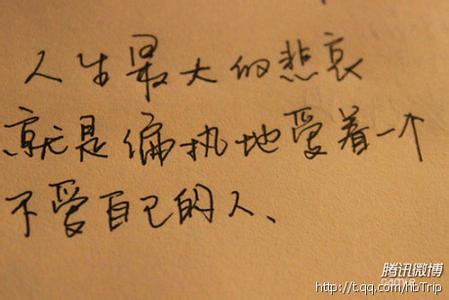 人生最大的悲哀
就是偏执地爱着一个
不爱自己的人、
腾讯微博
http://t.qq.com/hbTrip